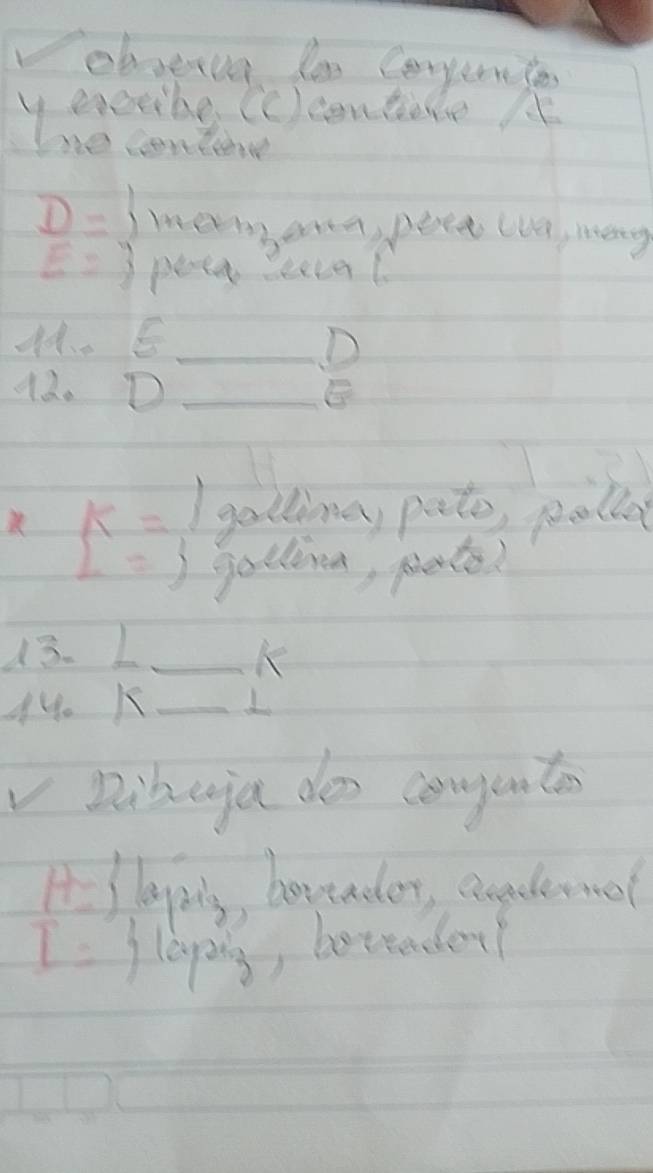 ✓ observa los conjuntos
y escribe (C) contiene /⊄
no contiene
D = }manzana, pera uva, mang
E = } pera uva {
11.. E ______ D
12. D ______ E
* K = } gallina, pato, pollo
L = } gallina, pato}
13. L ____ K
14. K ___ L
✓ Dibuja dos conjuntos
H = } lapiz, borrador, cuaderno{
I = } lapiz, borrador{